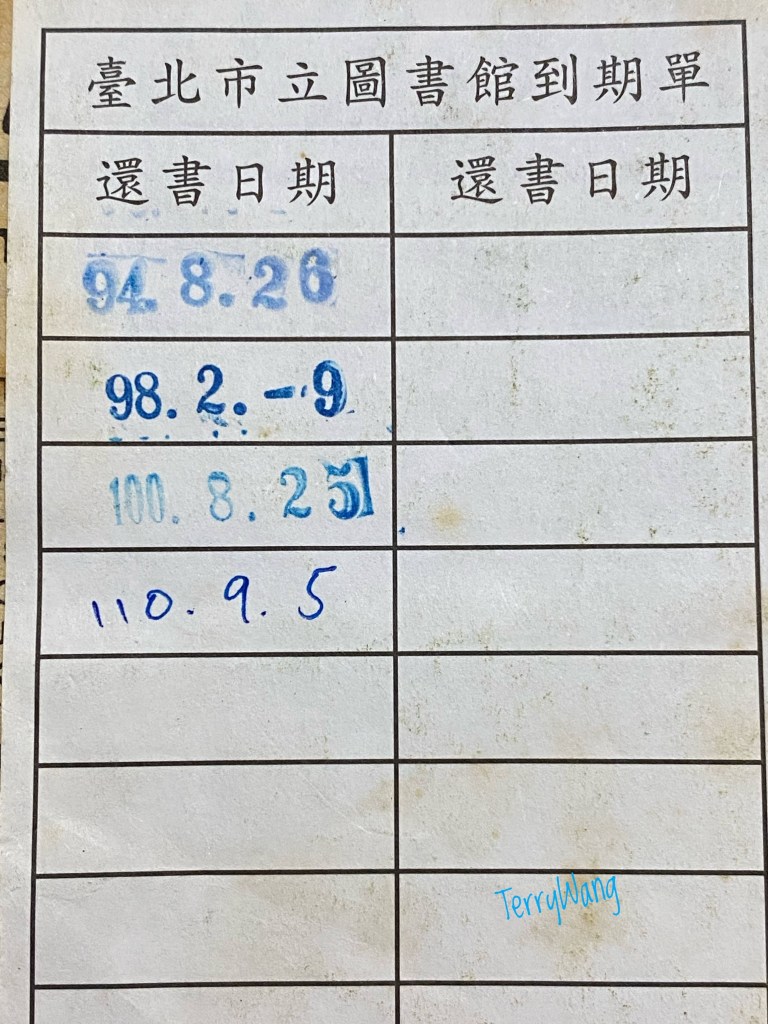 臺北市立圖書館到期單
還書日期 還書日期
94.8.26
98.2.-9
100.8.25
110.9.5
TerryWang